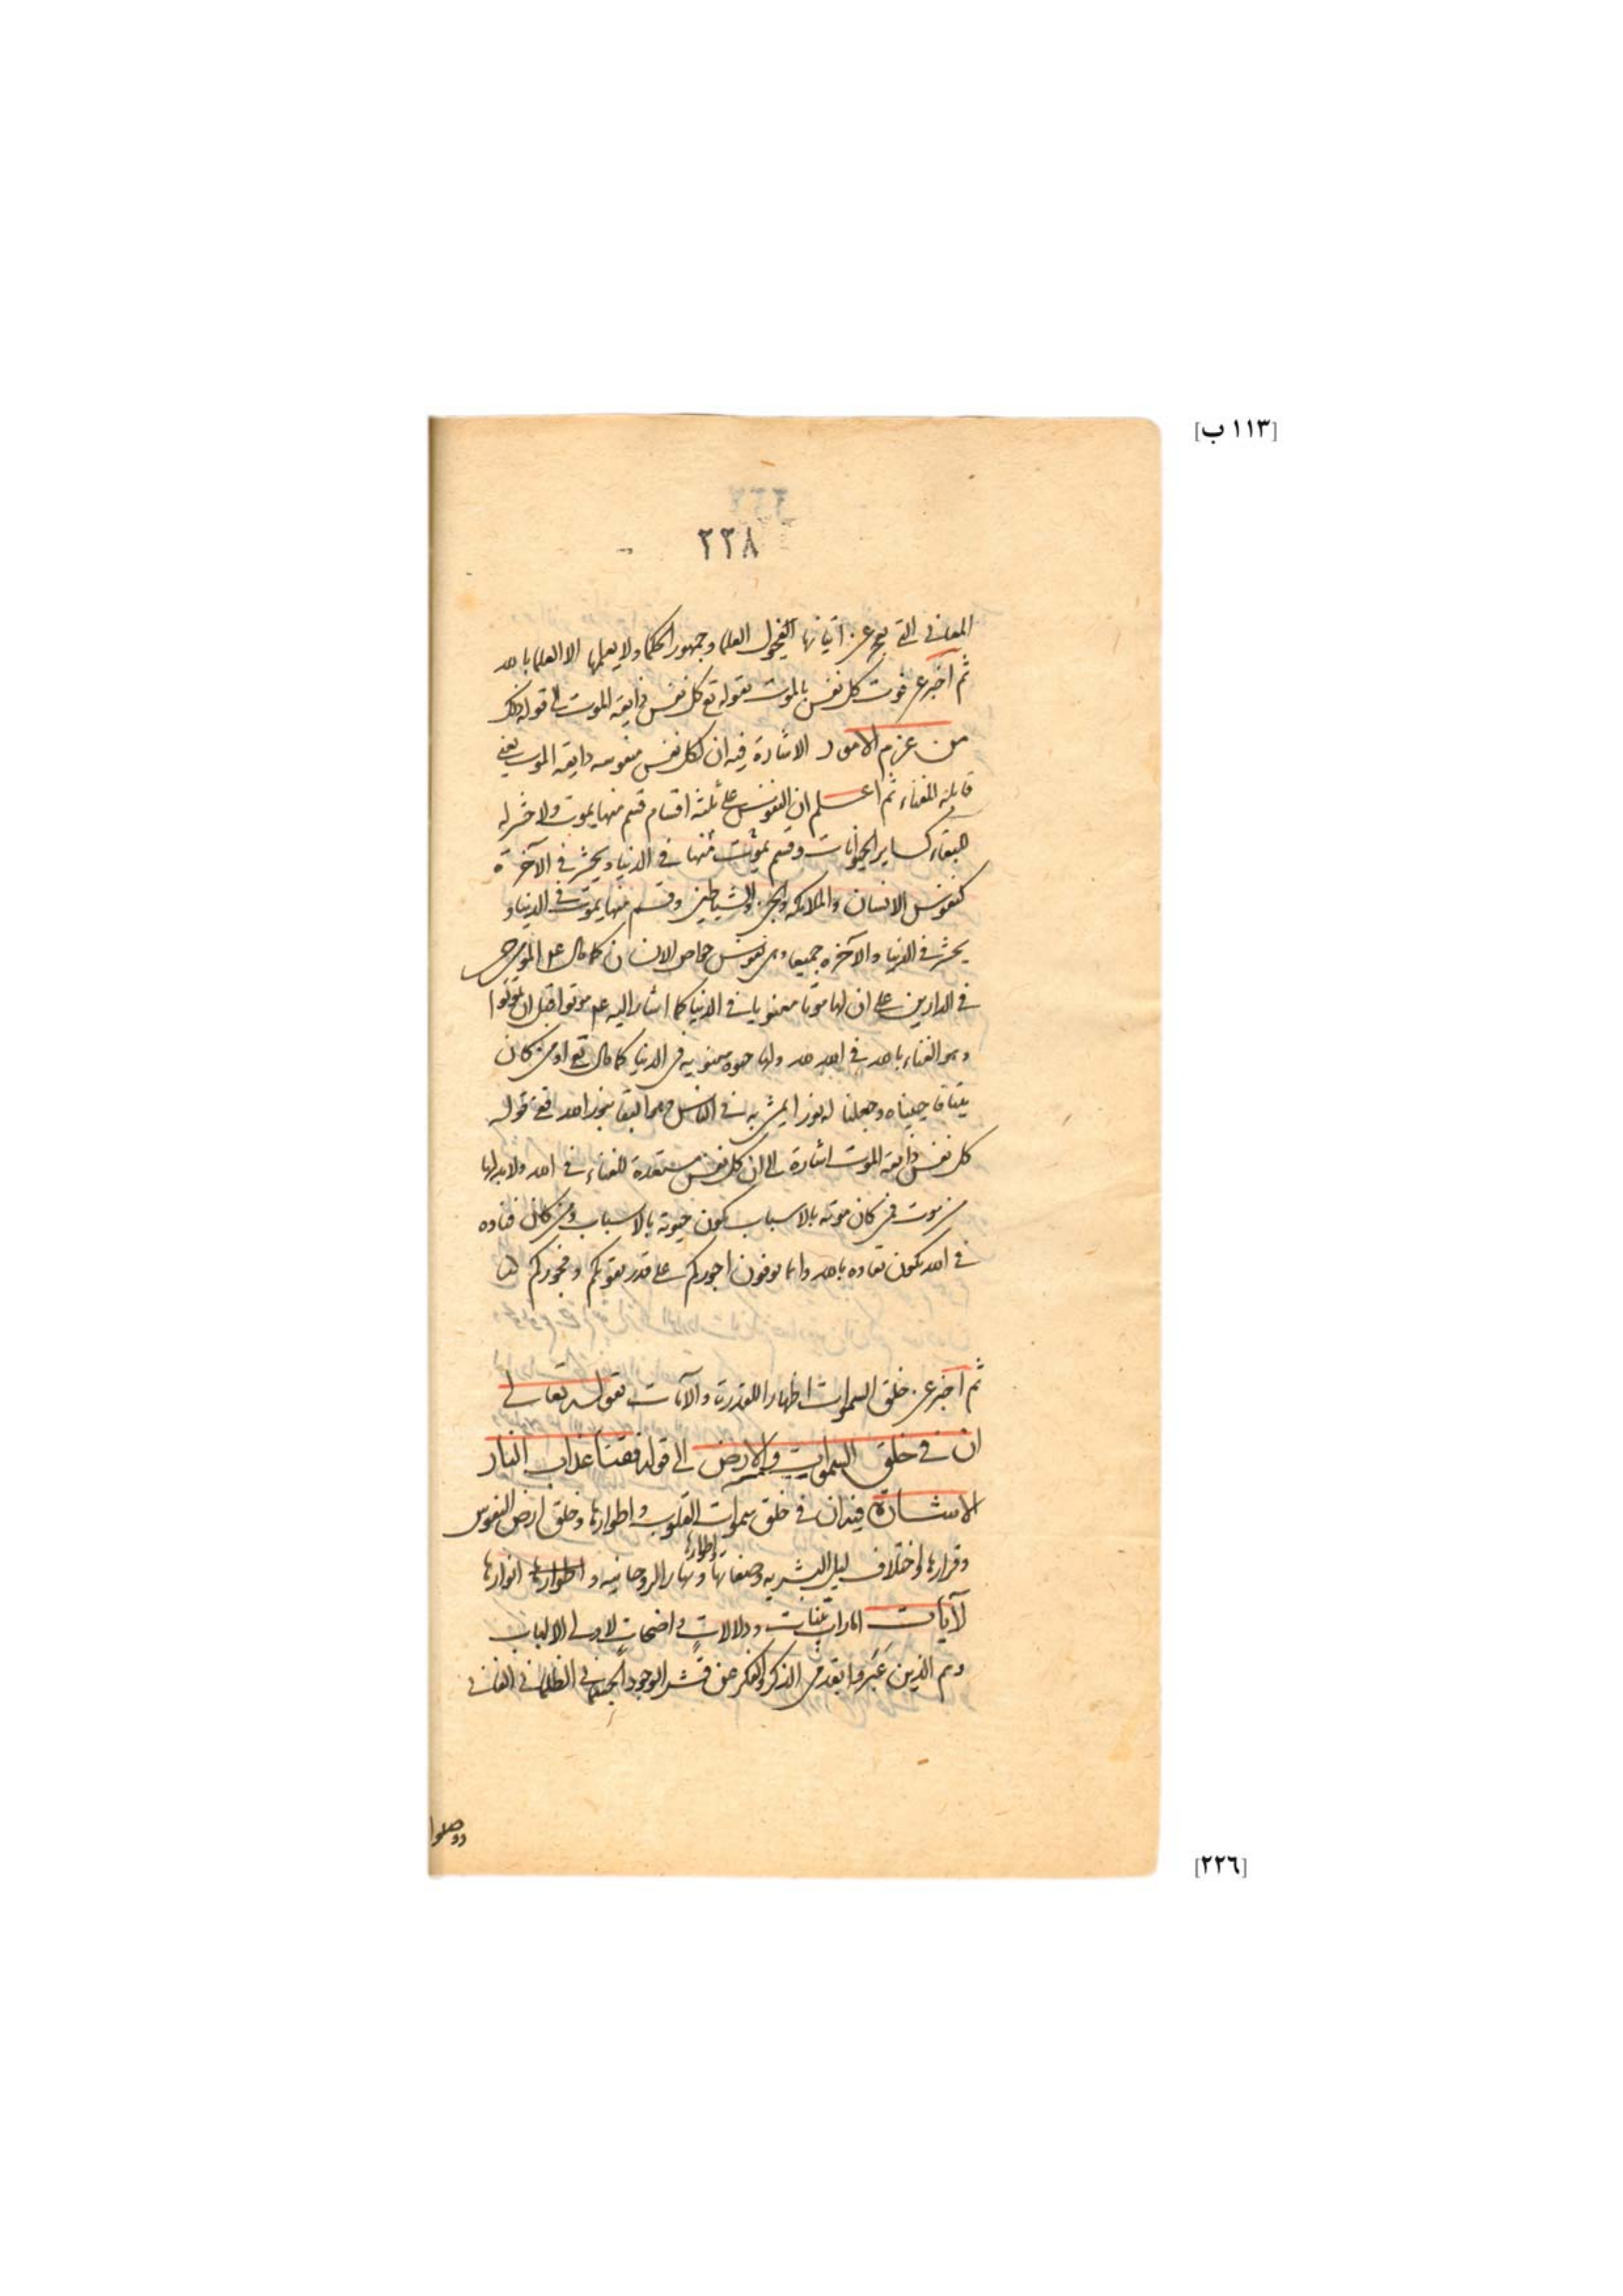 [١١٣ ب]
٢٢٨
المعاني التي يعجز عن اتيانها الفحول العلما وجمهور الحكما ولا يعلمها الا العلما بالله
ثم اخبر عن فوت كل نفس بالموت بقوله تع كل نفس ذايقة الموت الى قوله ذلك
من عزم الامور الاشارة فيه ان لكل نفس منفوسه ذايقه الموت يعني
قابلة للفناء ثم اعلم ان النفوس على ثلثة اقسام قسم منها يموت ولا حشر له
للبقاء كساير الحيوانات وقسم يموت منها في الدنيا ويحشر في الآخرة
كنفوس الانسان والملائكه والجن والشياطين وقسم منها يموت في الدنيا و
يحشر في الدنيا والآخره جميعا وهي نفوس خواص الانسان كما قال عم المؤمن حي
في الدارين على ان لها موتا معنويا في الدنيا كما اشار اليه عم موتوا قبل ان تموتوا
وهو الفناء بالله في الله لله ولها حيوه معنويه في الدنيا كما قال تع اومن كان
ميتا فاحييناه وجعلنا له نورا يمشي به في الناس وهو البقا بنور الله ففي قوله
كل نفس ذايقة الموت اشارة الى ان كل نفس مستعدة للفناء في الله ولا بد لها
من موت فمن كان موته بالاسباب يكون حيوته بالاسباب ومن كان فناوه
في الله يكون بقاوه بالله وانما توفون اجوركم على قدر تقويكم وفجوركم
ثم اخبر عن خلق السموات اظهارا للقدرت والآيات بقوله تعالى
ان في خلق السموات والارض الى قوله فقنا عذاب النار
الاشارة فيه ان في خلق سموات القلوب واطوارها وخلق ارض النفوس
وقرارها واختلاف ليل البشريه وصفاتها ونهار الروحانيه و اطوارها انوارها
اطوارها
لآيات امارات بينات ودلالات واضحات لاولى الالباب
وهم الذين عبروا بقدمي الذكر والفكر عن قشر الوجود الجسماني الظلماني الفاني
ووصلوا
[٢٢٦]